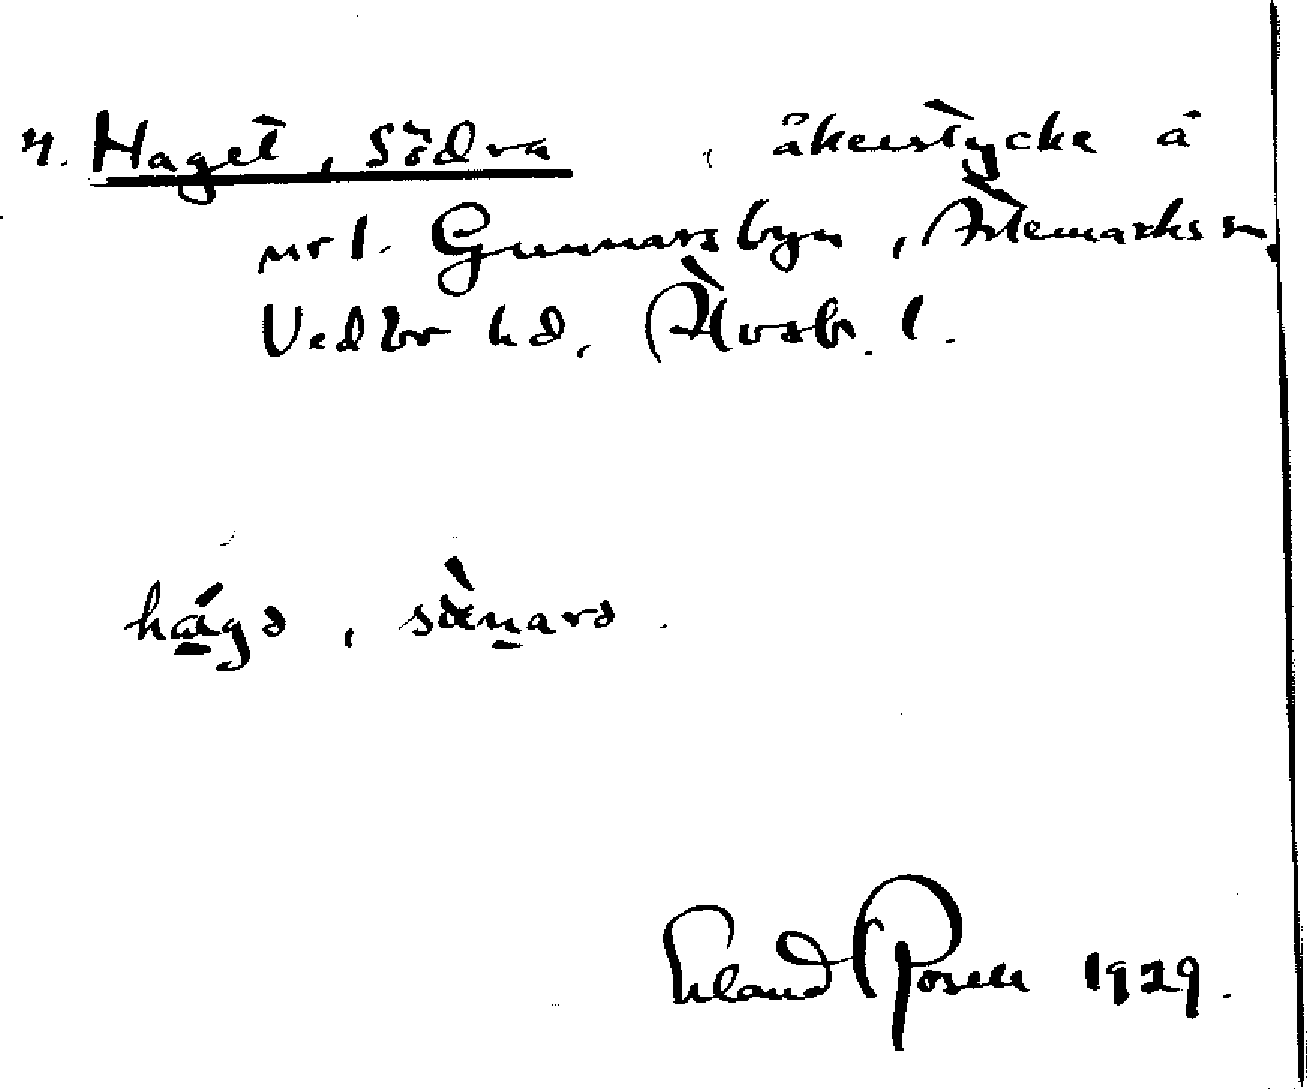 n. Haget, Södra, åkerstycke å
nr 1. Gunnarsbyn, Ärtemarks sn,
Vedbo hd, Älvsb. l.
hágə, sæ̀narə.
Erland Rosell 1929.